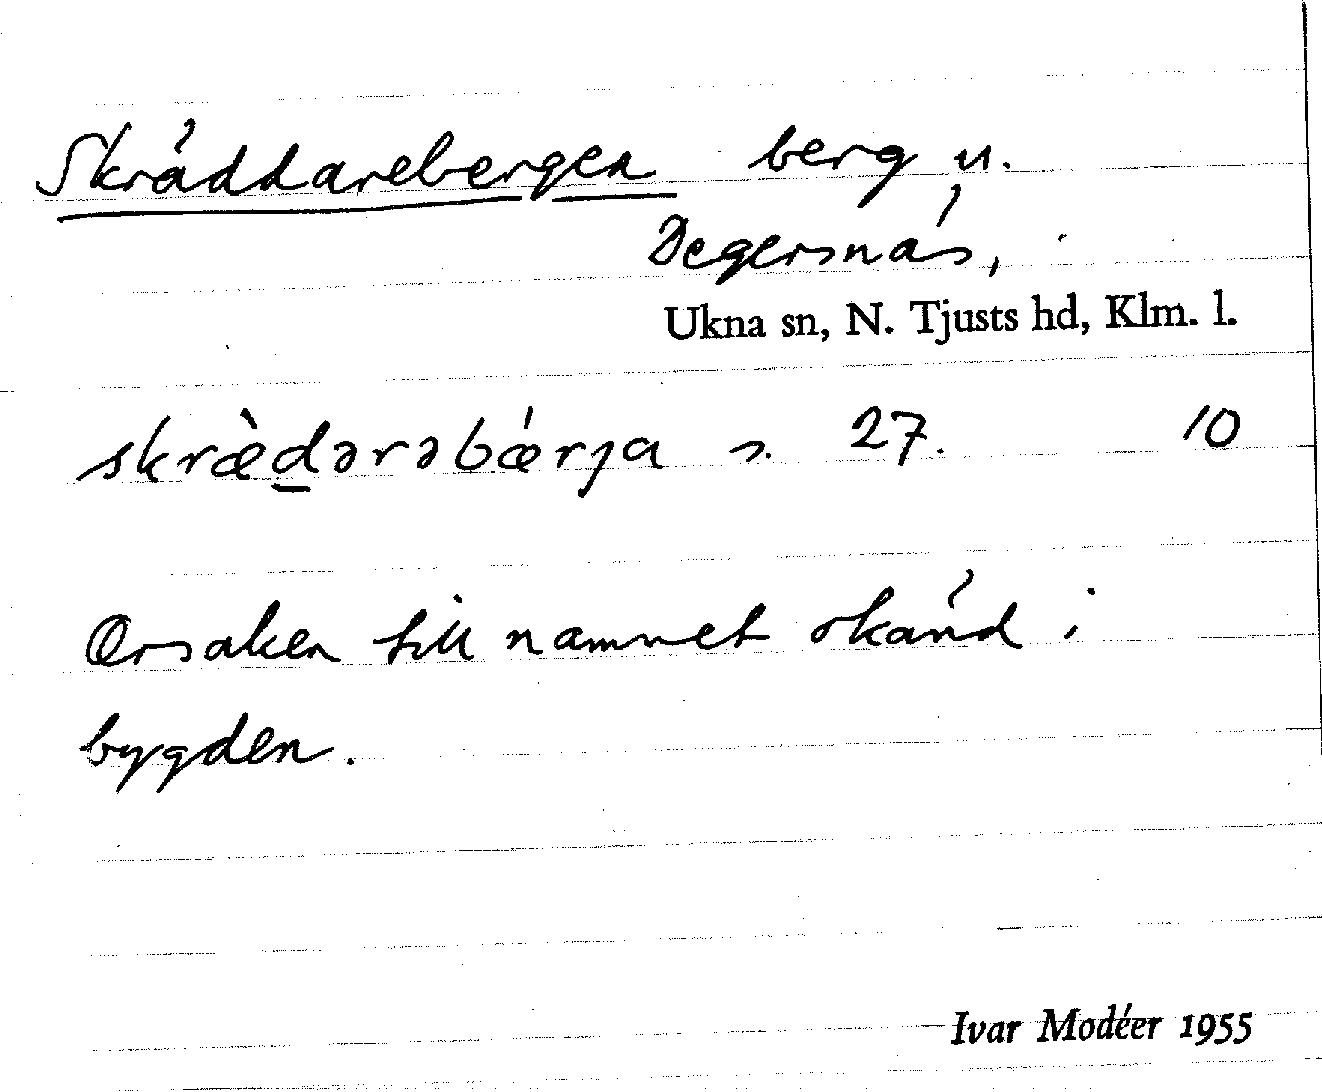 Skräddarebergen berg u.
Degersnäs,
Ukna sn, N. Tjusts hd, Klm. l.
skræ̀d̲ərəbærja s. 27. 10
Orsaken till namnet okänd i
bygden.
Ivar Modéer 1955